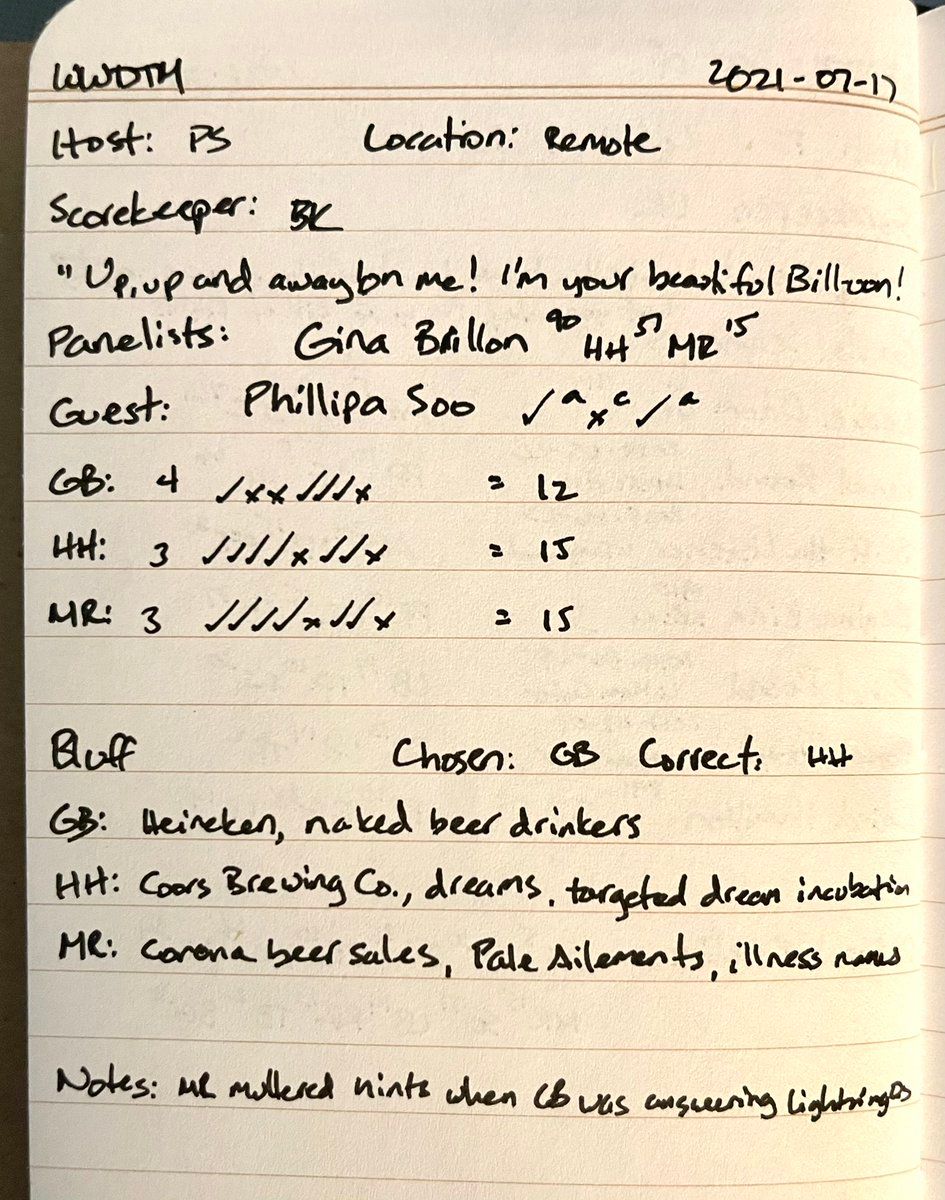 WWDTM 2021-07-17
Host: PS Location: Remote
Scorekeeper: BK
"Up, up and away on me! I'm your beautiful Billoon!
Panelists: Gina Brillon 90 HH 57 MR 15
Guest: Phillipa Soo ✓ a x c ✓ a
GB: 4 ✓xx✓✓✓x = 12
HH: 3 ✓✓✓✓x✓✓x = 15
MR: 3 ✓✓✓✓x✓✓x = 15
Bluff Chosen: GB Correct: HH
GB: Heineken, naked beer drinkers
HH: Coors Brewing Co., dreams, targeted dream incubation
MR: Corona beer sales, Pale Ailements, illness names
Notes: MR muttered hints when GB was answering Lightning Qs